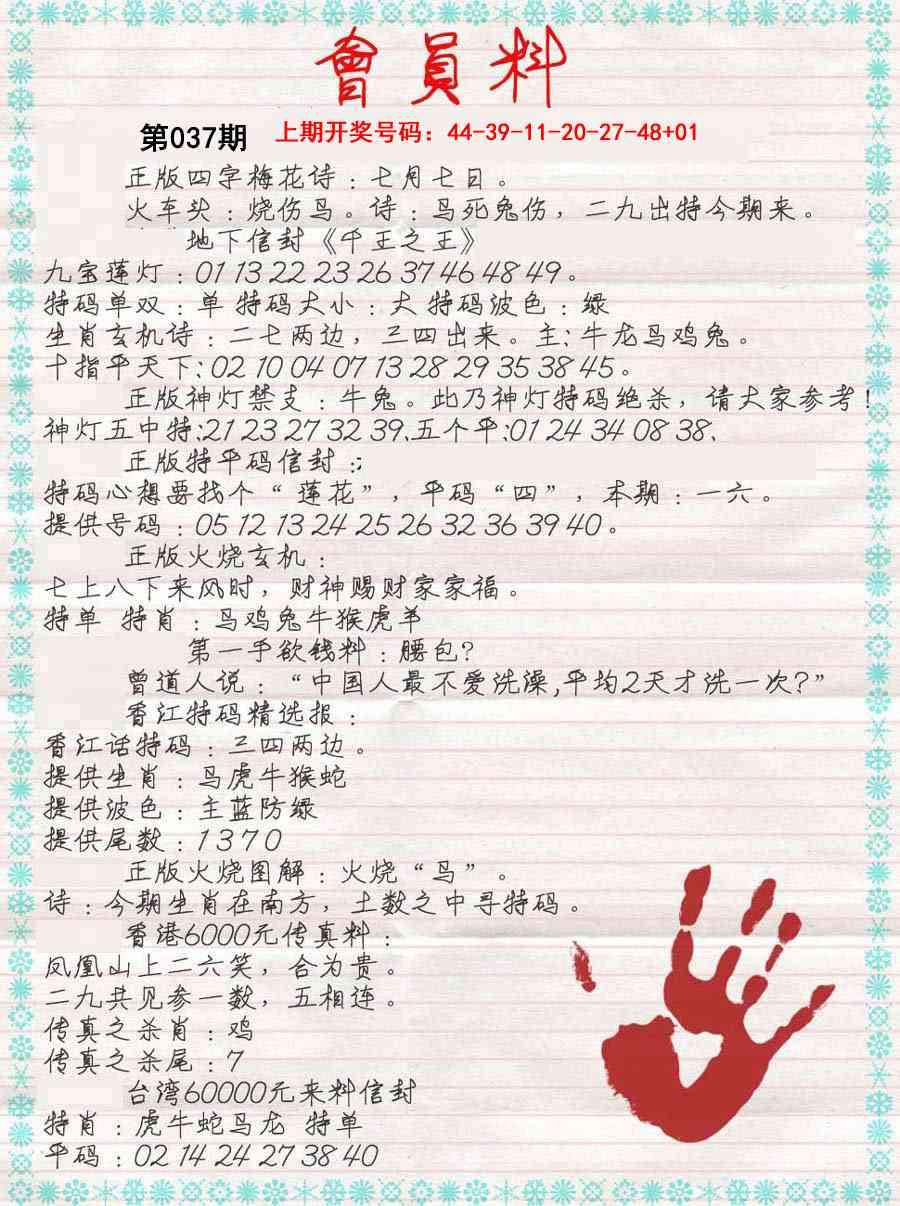 會員料
第037期 上期开奖号码：44-39-11-20-27-48+01
正版四字梅花诗：七月七日。
火车头：烧伤鸟。诗：鸟死兔伤，二九出特今期来。
地下信封《千王之王》
九宝莲灯：01 13 22 23 26 37 46 48 49。
特码单双：单 特码大小：大 特码波色：绿
生肖玄机诗：二七两边，三四出来。主：牛龙鸟鸡兔。
十指平天下：02 10 04 07 13 28 29 35 38 45。
正版神灯禁支：牛兔。此乃神灯特码绝杀，请大家参考！
神灯五中特：21 23 27 32 39、五个平：01 24 34 08 38、
正版特平码信封：；
特码心想要找个“莲花”，平码“四”，本期：一六。
提供号码：05 12 13 24 25 26 32 36 39 40。
正版火烧玄机：
七上八下来风时，财神赐财家家福。
特单 特肖：鸟鸡兔牛猴虎羊
第一手欲钱料：腰包？
曾道人说：“中国人最不爱洗澡,平均2天才洗一次？”
香江特码精选报：
香江话特码：三四两边。
提供生肖：鸟虎牛猴蛇
提供波色：主蓝防绿
提供尾数：1 3 7 0
正版火烧图解：火烧“鸟”。
诗：今期生肖在南方，土数之中寻特码。
香港6000元传真料：
凤凰山上二六笑，合为贵。
二九共见参一数，五相连。
传真之杀肖：鸡
传真之杀尾：7
台湾60000元来料信封
特肖：虎牛蛇马龙 特单
平码：02 14 24 27 38 40